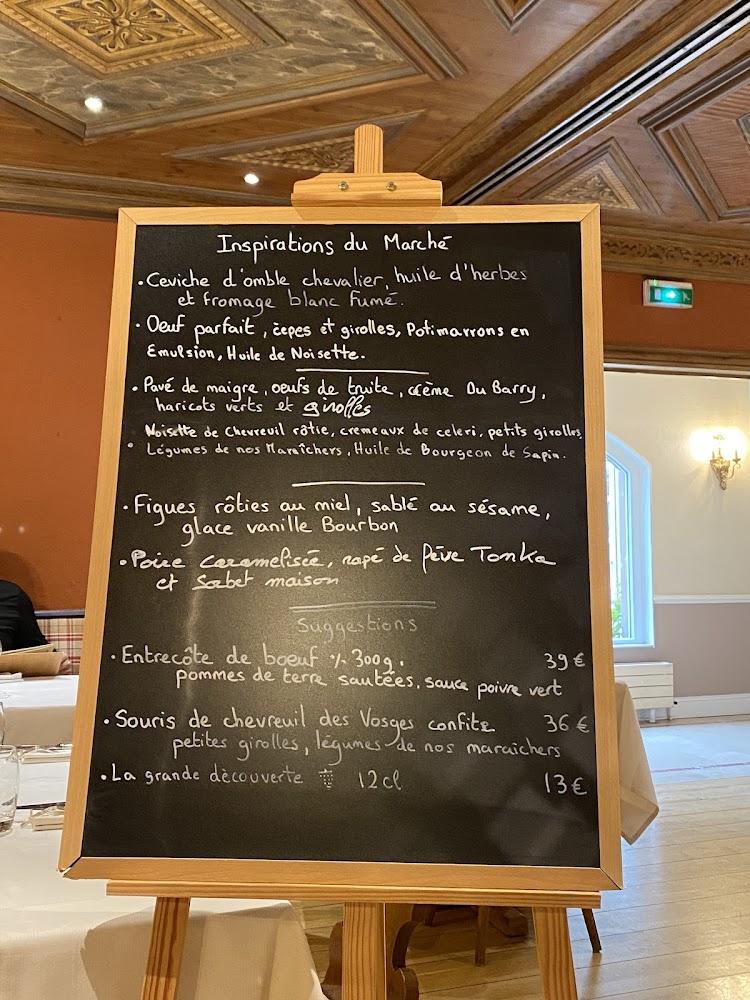 Inspirations du Marché
• Ceviche d'omble chevalier, huile d'herbes
et fromage blanc fumé.
• Oeuf parfait, cèpes et girolles, Potimarrons en
Emulsion, Huile de Noisette.
• Pavé de maigre, oeufs de truite, crème Du Barry,
haricots verts et girolles
Noisette de Chevreuil rôtie, cremeaux de celeri, petits girolles,
• Légumes de nos Maraîchers, Huile de Bourgeon de Sapin.
• Figues rôties au miel, sablé au sésame,
glace vanille Bourbon
• Poire caramelisée, rapé de fève Tonka
et Sorbet maison
Suggestions
• Entrecôte de boeuf ٪ 300g. 39 €
pommes de terre sautées, sauce poivre vert
• Souris de chevreuil des Vosges confite 36 €
petites girolles, légumes de nos maraichers
• La grande découverte 12cl 13 €